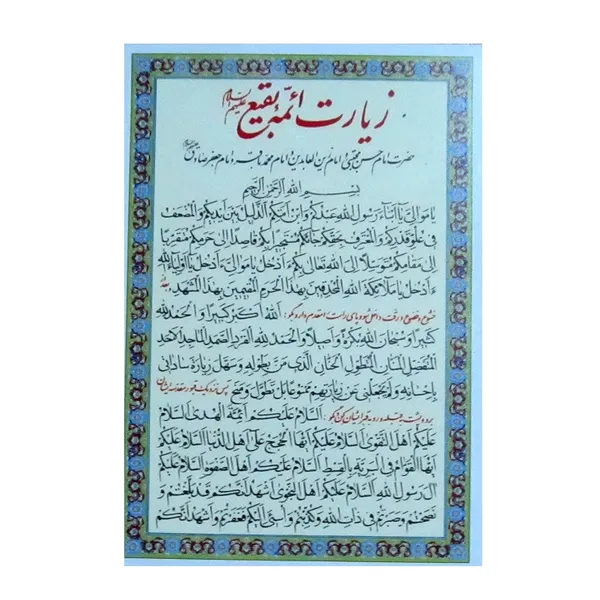 زیارت ائمهٔ بقیع علیهم السلام
حضرت امام حسن مجتبی و امام زین العابدین و امام محمد باقر و امام جعفر صادق
بِسْمِ اللهِ الرَّحْمٰنِ الرَّحیمِ
یا مَوالِیَّ یا اَبْناءَ رَسُولِ اللهِ عَبْدُکُمْ وَابْنُ اَمَتِکُمُ الذَّلیلُ بَیْنَ اَیْدیکُمْ وَالْمُضْعِفُ
فی عُلُوِّ قَدْرِکُمْ وَالْمُعْتَرِفُ بِحَقِّکُمْ جائَکُمْ مُسْتَجیراً بِکُمْ قاصِداً اِلی حَرَمِکُمْ مُتَقَرِّباً
اِلی مَقامِکُمْ مُتَوَسِّلاً اِلَی اللهِ تَعالی بِکُمْ ءَاَدْخُلُ یا مَوالِیَّ ءَاَدْخُلُ یا اَوْلِیاءَ اللهِ
ءَاَدْخُلُ یا مَلائِکَةَ اللهِ الْمُحْدِقینَ بِهذَا الْحَرَمِ الْمُقیمینَ بِهذَا الْمَشْهَدِ
خشوع و خضوع و رقت داخل شو و پای راست را مقدم دار و بگو: اَللهُ اَکْبَرُ کَبیراً وَالْحَمْدُ لِلّهِ
کَثیراً وَسُبْحانَ اللهِ بُکْرَةً وَاَصیلاً وَالْحَمْدُ لِلّهِ الْفَرْدِ الصَّمَدِ الْماجِدِ الْاَحَدِ
الْمُتَفَضِّلِ الْمَنّانِ الْمُتَطَوِّلِ الْحَنّانِ الَّذی مَنَّ بِطَوْلِهِ وَسَهَّلَ زِیارَةَ ساداتی
بِاِحْسانِهِ وَلَمْ یَجْعَلْنی عَنْ زِیارَتِهِمْ مَمْنُوعاً بَلْ تَطَوَّلَ وَمَنَحَ پس نزدیک قبور مقدسه ایشان
برو و پشت به قبله و رو به قبر ایشان کن و بگو: اَلسَّلامُ عَلَیْکُمْ اَئِمَّةَ الْهُدی اَلسَّلامُ
عَلَیْکُمْ اَهْلَ التَّقْوی اَلسَّلامُ عَلَیْکُمْ اَیُّهَا الْحُجَجُ عَلی اَهْلِ الدُّنْیا اَلسَّلامُ عَلَیْکُمْ
اَیُّهَا الْقُوّامُ فِی الْبَرِیَّةِ بِالْقِسْطِ اَلسَّلامُ عَلَیْکُمْ اَهْلَ الصَّفْوَةِ اَلسَّلامُ عَلَیْکُمْ
آلَ رَسُولِ اللهِ اَلسَّلامُ عَلَیْکُمْ اَهْلَ النَّجْوی اَشْهَدُ اَنَّکُمْ قَدْ بَلَّغْتُمْ وَ
نَصَحْتُمْ وَصَبَرْتُمْ فی ذاتِ اللهِ وَکُذِّبْتُمْ وَاُسیئَ اِلَیْکُمْ فَغَفَرْتُمْ وَاَشْهَدُ اَنَّکُمُ